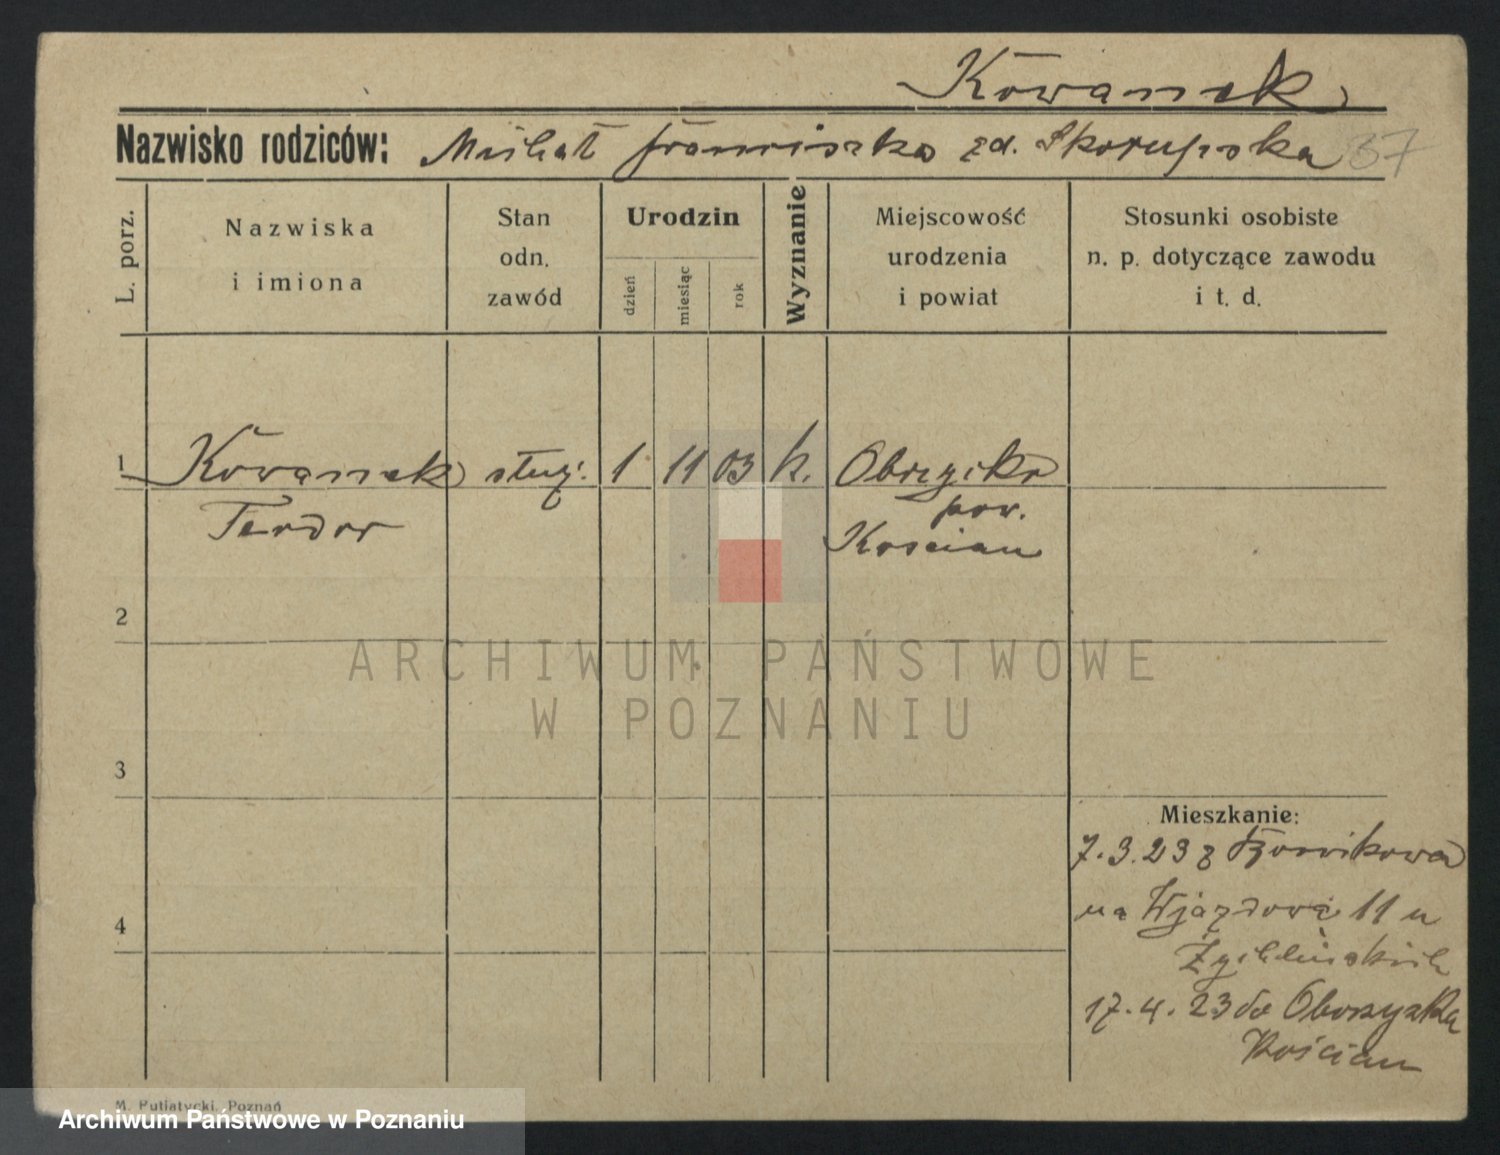 Kowanek
Nazwisko rodziców: Michał Franciszka zd. Skorupska 37
L. porz.
Nazwiska
i imiona
Stan
odn.
zawód
Urodzin
dzień
miesiąc
rok
Wyznanie
Miejscowość
urodzenia
i powiat
Stosunki osobiste
n. p. dotyczące zawodu
i t. d.
1 Kowanek służ. 1 11 03 k. Obrzyko
Teodor pow.
Koscian
2
ARCHIWUM PAŃSTWOWE
W POZNANIU
3
Mieszkanie:
7.3.23 z
4
na Wjazdową 11 u
17.4.23 do Oborzyska
Kościan
M. Putiatycki, Poznań
Archiwum Państwowe w Poznaniu